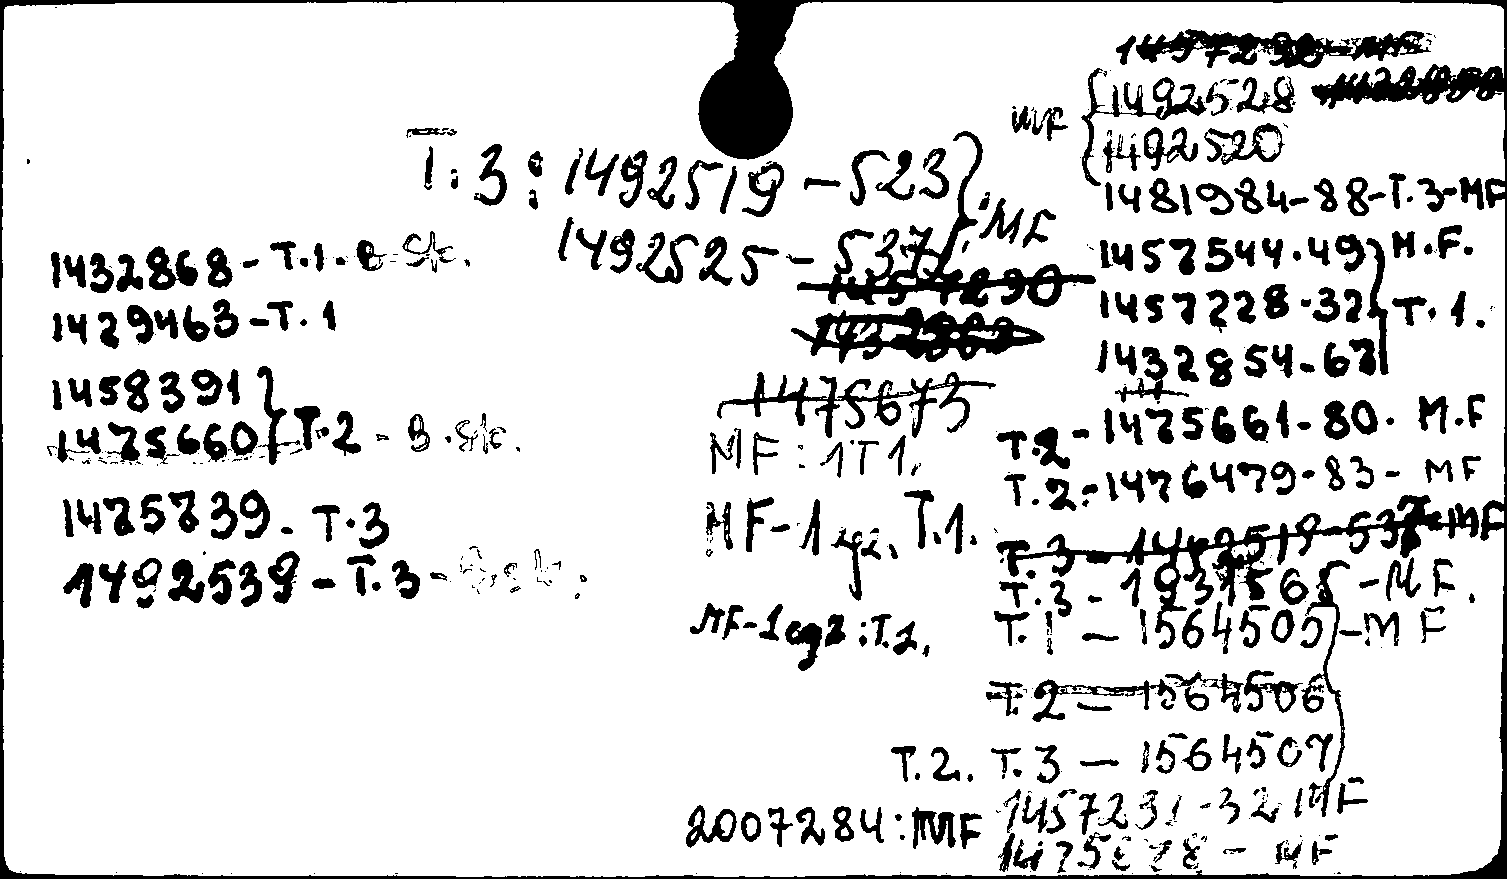 T. 3 : 1492519 – 523
1492525 – 537 } MF
1475673
MF : 1 T 1.
MF – 1 egz. T.1.
MF – 1 egz : T.1.
1432868 – T.1.
1429463 – T. 1
1458391
1475660 } T.2 – B.Sk.
1475739 – T.3
1492539 – T.3 –
MF { 1492528
1492520
1481984 – 88 – T.3 – MF
1457544.49 } M.F.
1457228.32 } T.1.
1432854 – 67
T.2 – 1475661 – 80. M.F
T.2. – 1476479 – 83 – MF
T.3 – 1492519 – 537 – MF
T.3 – 1931565 – MF.
T.1 – 1564505 – MF
T.2 – 1564506
T.2. T.3 – 1564507
2007284 : MF
1457231 – 32 MF